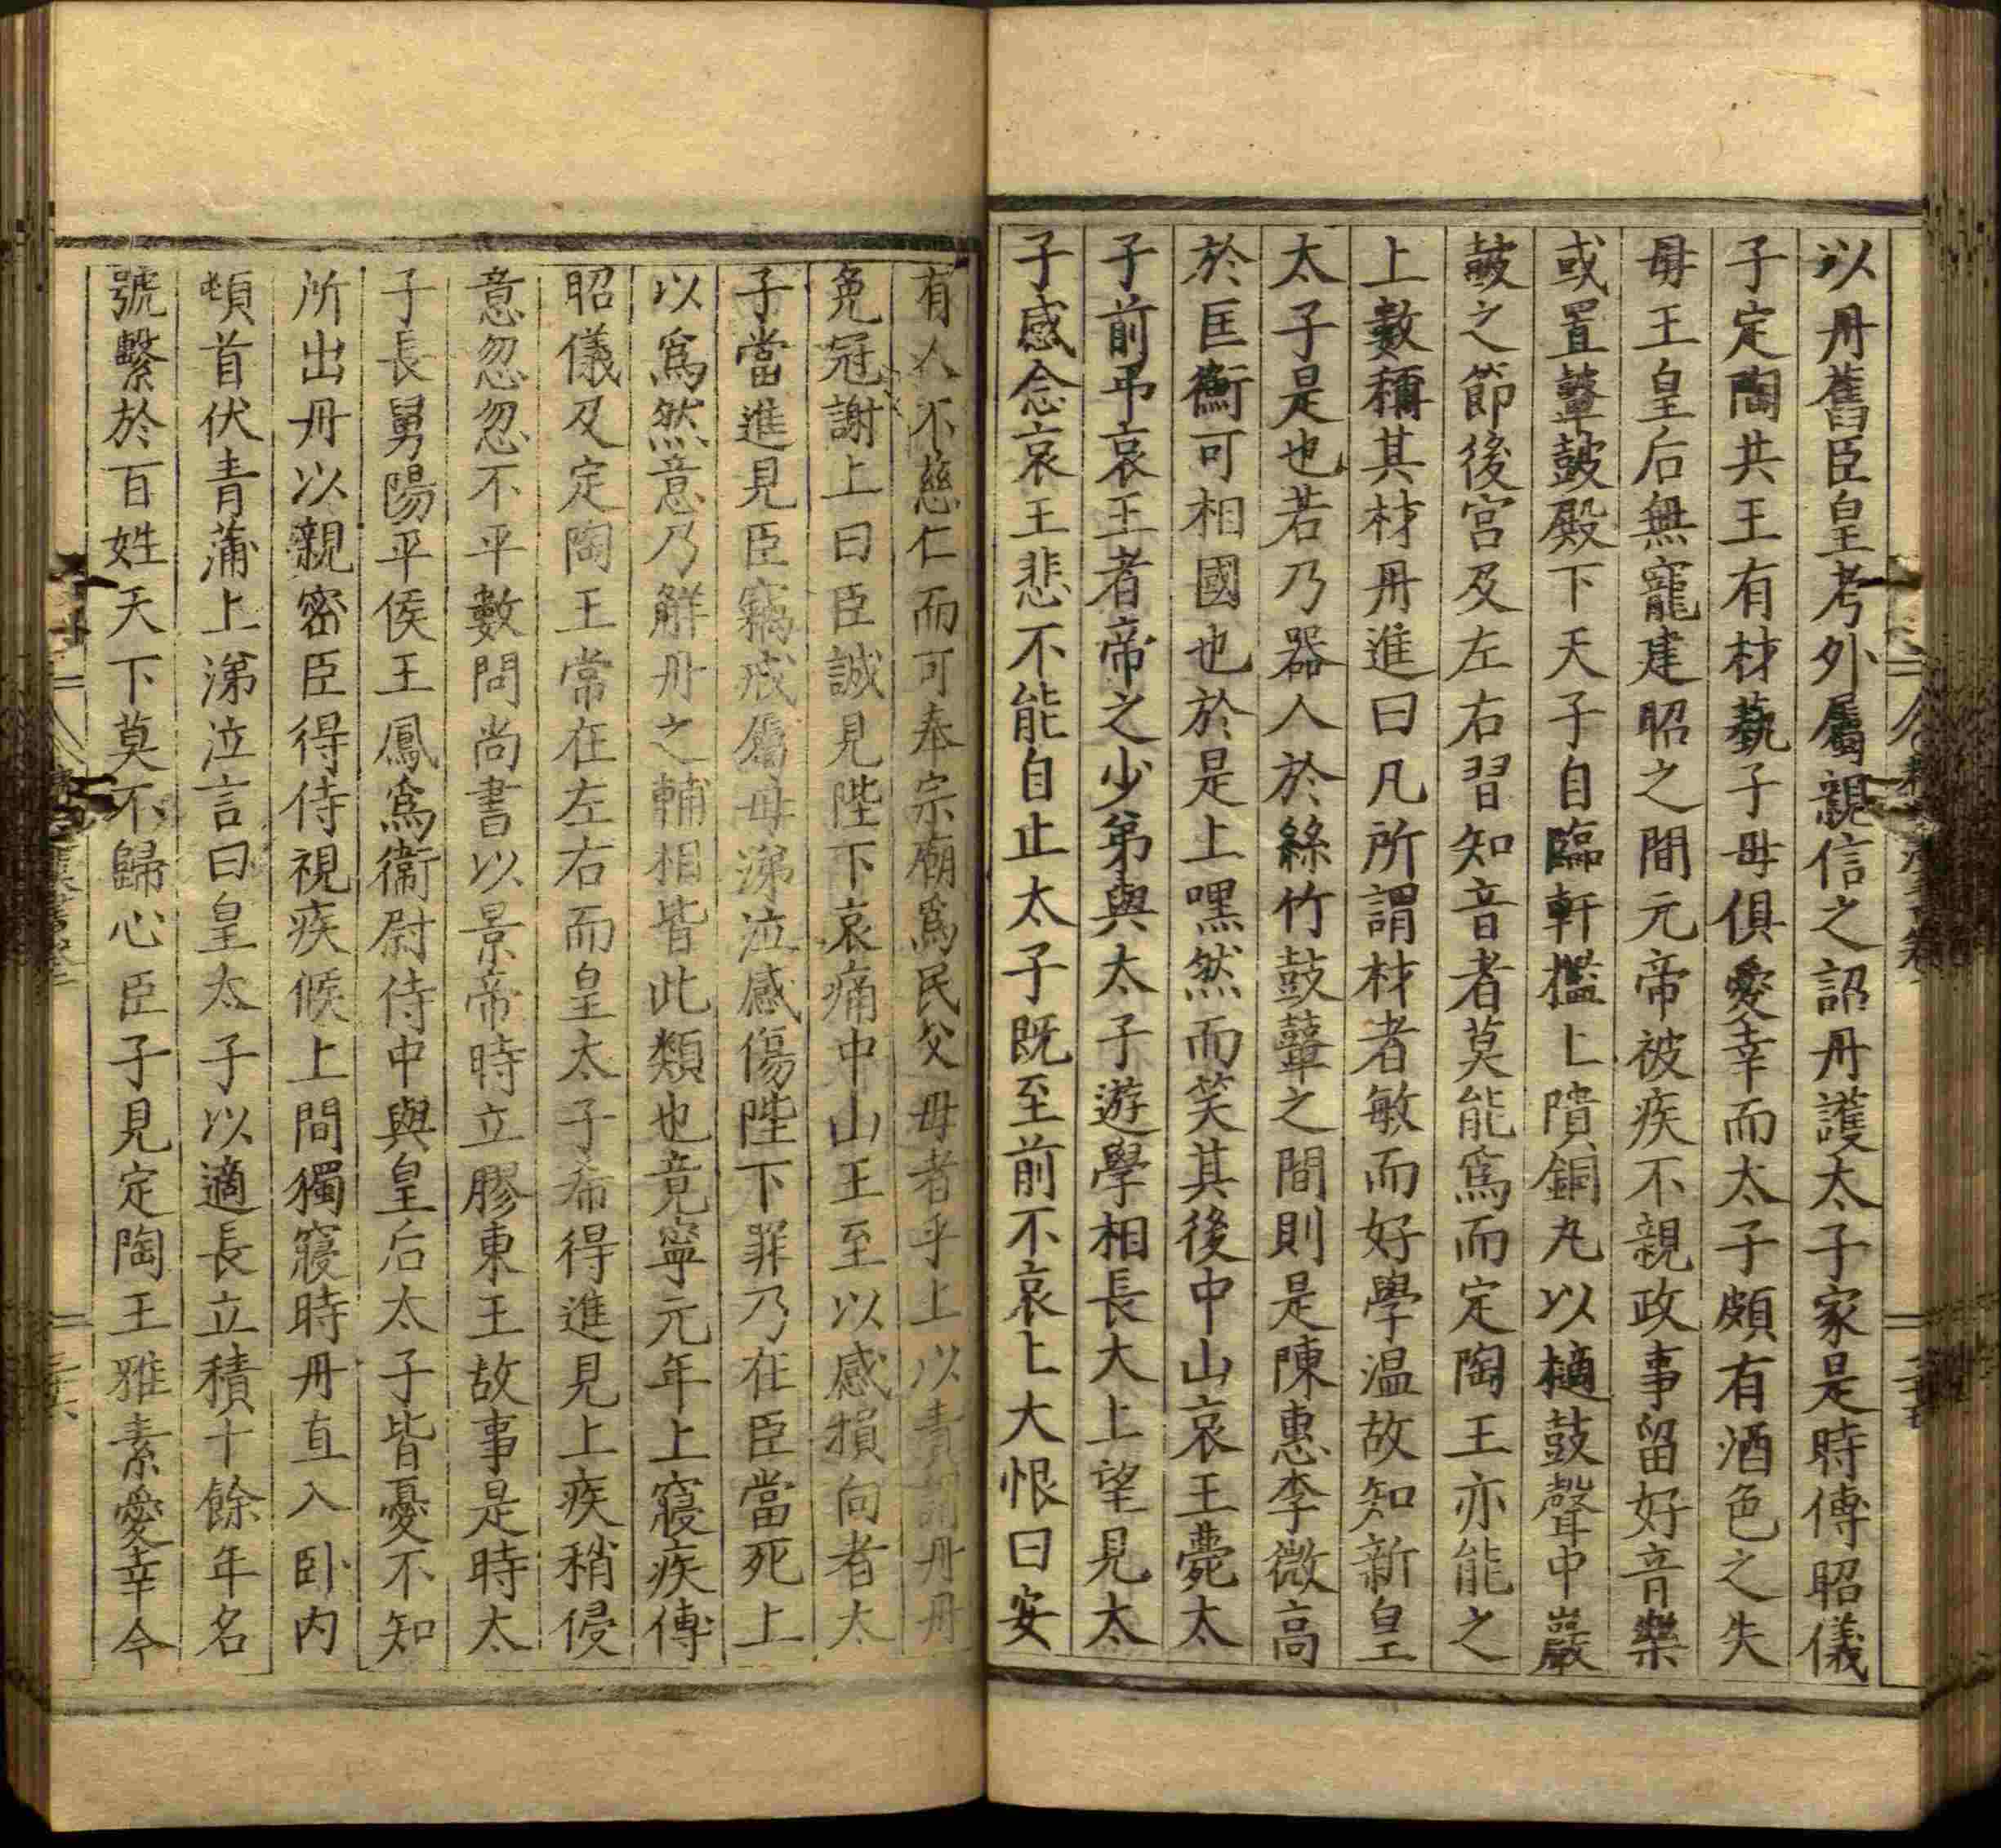 以丹舊臣皇考外屬親信之詔丹護太子家是時傅昭儀
子定陶共王有材藝子母俱愛幸而太子頗有酒色之失
母王皇后無寵建昭之間元帝被疾不親政事留好音樂
或置鼙鼓殿下天子自臨軒檻上隤銅丸以擿鼓聲中嚴
鼓之節後宮及左右習知音者莫能爲而定陶王亦能之
上數稱其材丹進曰凡所謂材者敏而好學温故知新皇
太子是也若乃器人於絲竹鼓鼙之間則是陳惠李微高
於匡衡可相國也於是上嘿然而笑其後中山哀王薨太
子前弔哀王者帝之少弟與太子遊學相長大上望見太
子感念哀王悲不能自止太子既至前不哀上大恨曰安
有人不慈仁而可奉宗廟爲民父母者乎上以責謂丹丹
免冠謝上曰臣誠見陛下哀痛中山王至以感損向者太
子當進見臣竊戒屬毋涕泣感傷陛下罪乃在臣當死上
以爲然意乃解丹之輔相皆此類也竟寧元年上寢疾傅
昭儀及定陶王常在左右而皇太子希得進見上疾稍侵
意忽忽不平數問尚書以景帝時立膠東王故事是時太
子長舅陽平侯王鳳爲衞尉侍中與皇后太子皆憂不知
所出丹以親密臣得侍視疾候上間獨寢時丹直入卧内
頓首伏青蒲上涕泣言曰皇太子以適長立積十餘年名
號繫於百姓天下莫不歸心臣子見定陶王雅素愛幸今